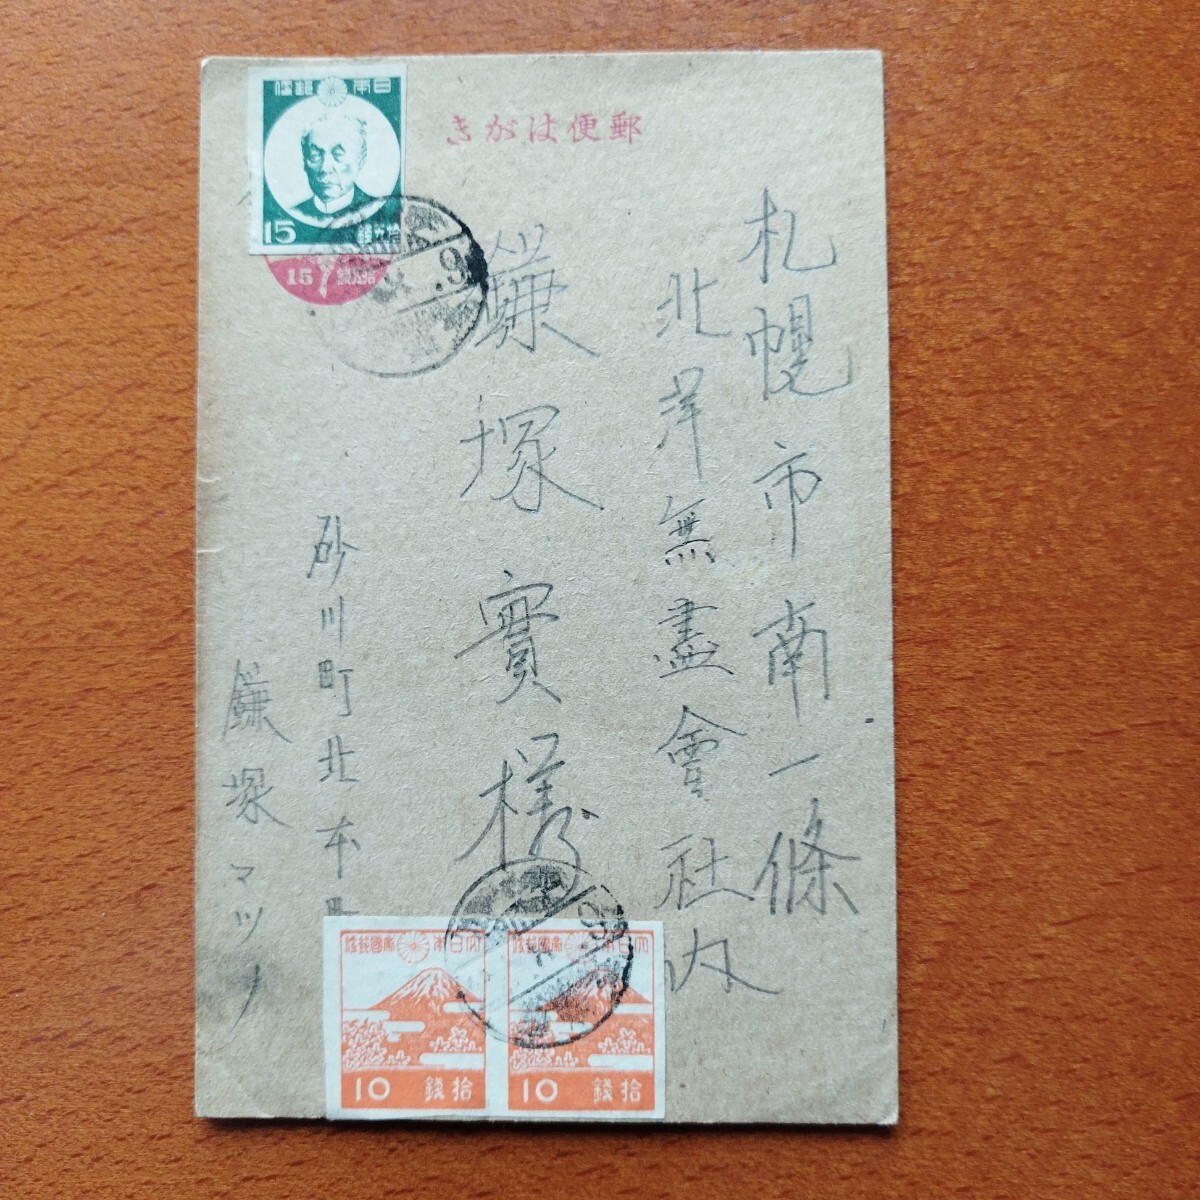 郵便はがき
日本郵便
15 拾五銭
15 拾五銭
札幌市南一條
北洋無盡會社内
鎌塚實様
砂川町北本
鎌塚マツノ
大日本帝國郵便
10 拾銭
大日本帝國郵便
10 拾銭
9